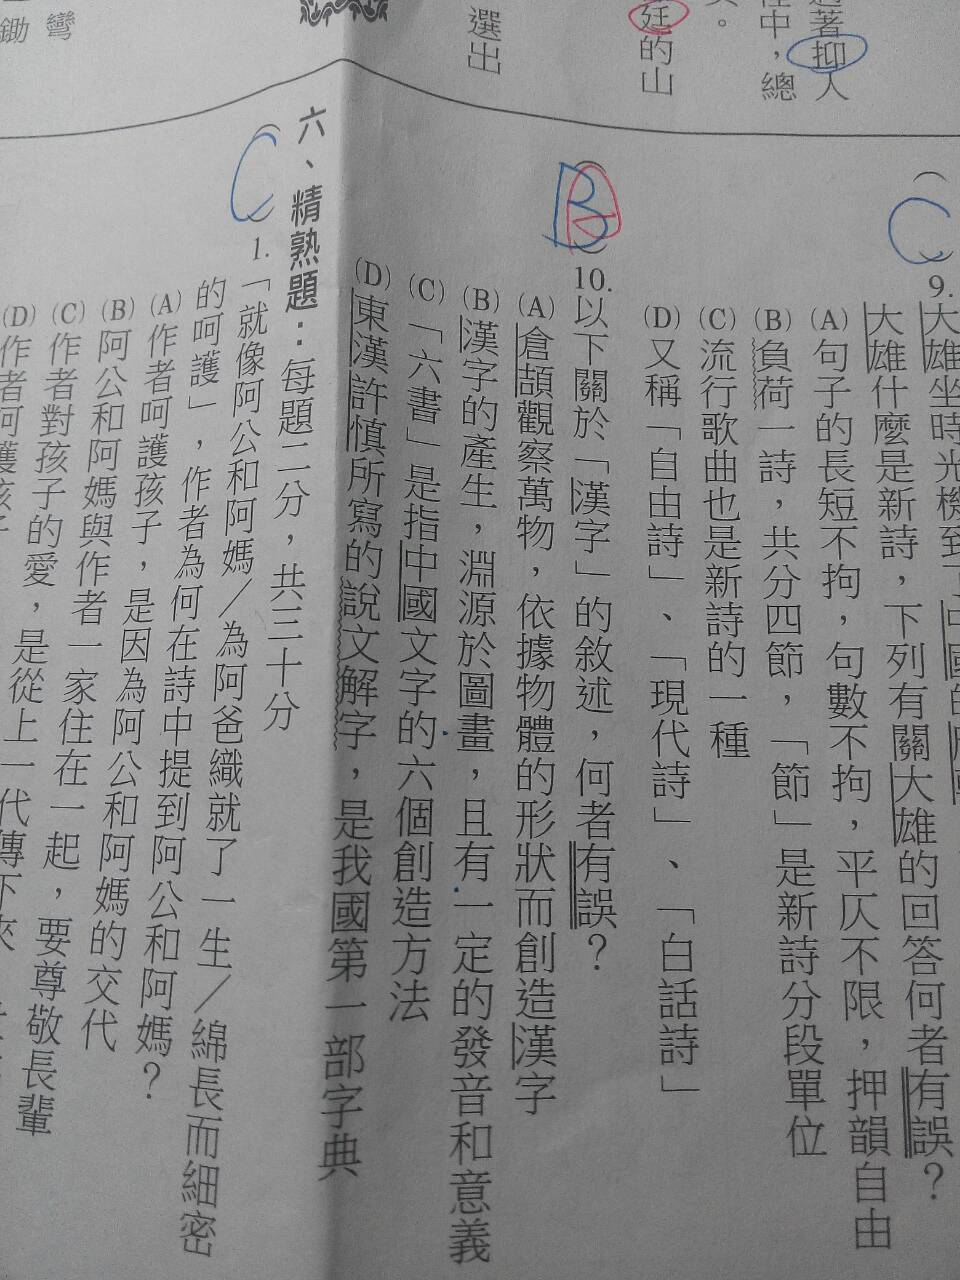 著抑人
中，總
廷的山
選出
彎
鋤
C
9.
大雄坐時光機到了中國的
大雄什麼是新詩，下列有關大雄的回答何者有誤？
(A)句子的長短不拘，句數不拘，平仄不限，押韻自由
(B)負荷一詩，共分四節，「節」是新詩分段單位
(C)流行歌曲也是新詩的一種
(D)又稱「自由詩」、「現代詩」、「白話詩」
B
10.以下關於「漢字」的敘述，何者有誤？
(A)倉頡觀察萬物，依據物體的形狀而創造漢字
(B)漢字的產生，淵源於圖畫，且有一定的發音和意義
(C)「六書」是指中國文字的六個創造方法
(D)東漢許慎所寫的說文解字，是我國第一部字典
六、精熟題：每題二分，共三十分
C
1.「就像阿公和阿媽／為阿爸織就了一生／綿長而細密
的呵護」，作者為何在詩中提到阿公和阿媽？
(A)作者呵護孩子，是因為阿公和阿媽的交代
(B)阿公和阿媽與作者一家住在一起，要尊敬長輩
(C)作者對孩子的愛，是從上一代傳下來
(D)作者呵護孩子